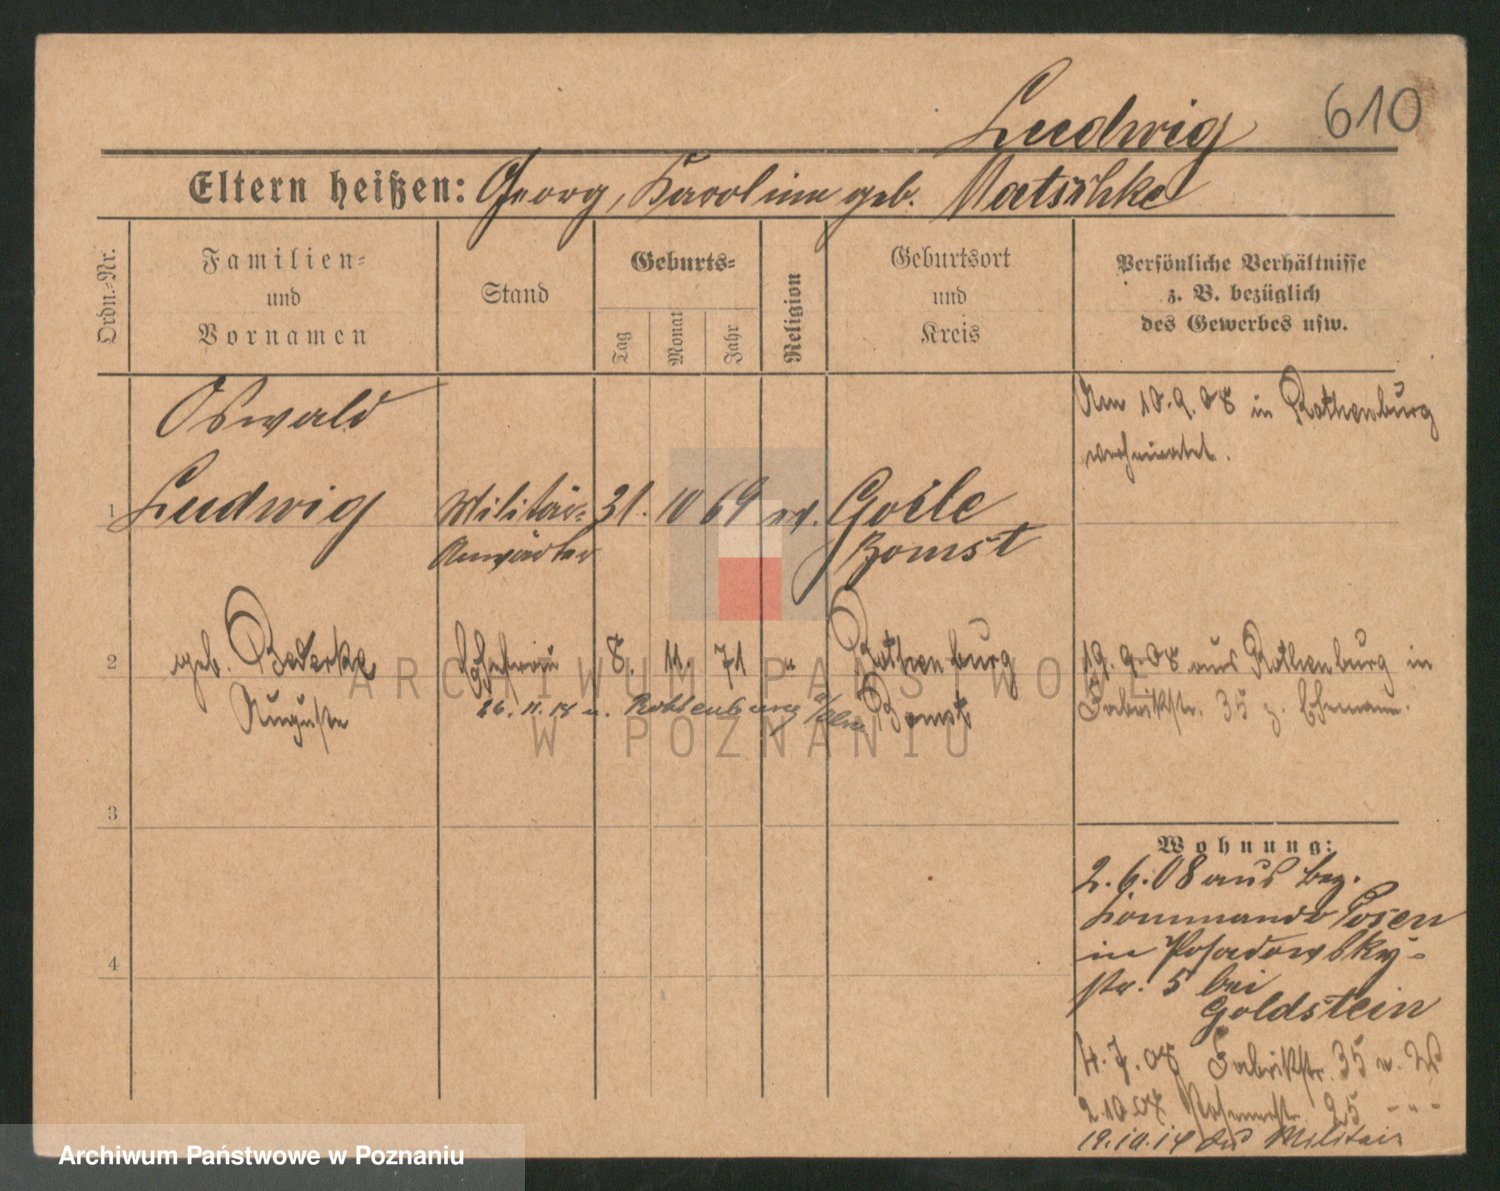 Ludwig 610
Eltern heißen: Georg, Karoline geb. Matschke
Ordn.-Nr.
Familien-
und
Vornamen
Stand
Geburts-
Tag
Monat
Jahr
Religion
Geburtsort
und
Kreis
Persönliche Verhältnisse
z. B. bezüglich
des Gewerbes usw.
Oswald
Am 10.9.08 in Rothenburg
verheiratet.
1 Ludwig Militär- 31. 10 69 ev. Goile
Anwärter Bomst
2 geb. Ehefrau 8. 11. 71 " Rothenburg
19. 9. 08 aus Rothenburg in
Auguste
26. 11. 18 n. Rothenburg a/Obra Bomst
Fabrikstr. 35 z. Ehemann.
3
Wohnung:
2. 6. 08 aus Bez.
Kommando Posen
4
in Posadowsky-
str. 5 bei
Goldstein
4. 7. 08 Fabrikstr. 35 n. W
2.10.08 25 - " -
19.10.14 Militair
ARCHIWUM PAŃSTWOWE
W POZNANIU
Archiwum Państwowe w Poznaniu